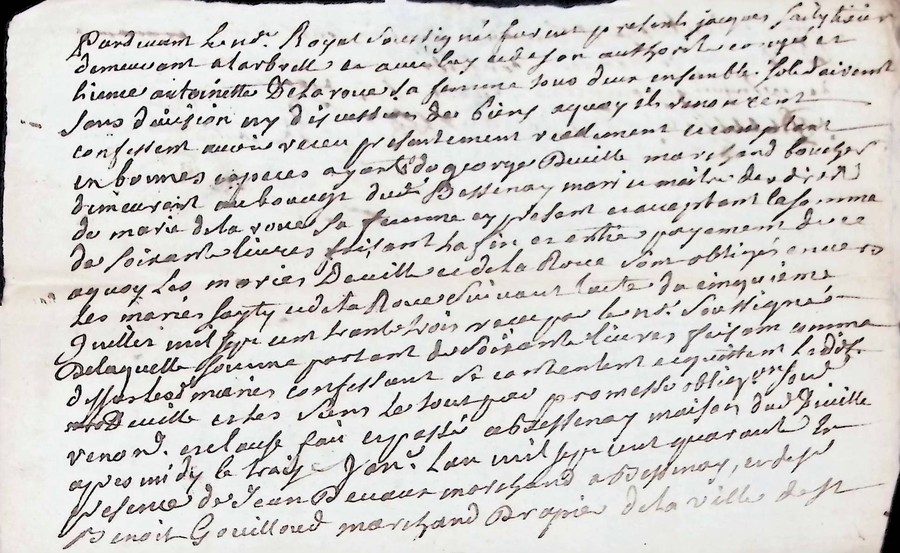 Pardevant le no.re Royal soussigné furent presents jacques
demeurant a larbrelle et avec luy et de son authorité congé et
licence antoinette Delaroue sa femme tous deux ensemble solidairement
sans division ny discussion de biens a quoy ils renoncent
confessent avoir receu presentement reellement et comptant
en bonnes especes ayant george Deville marchand boucher
demeurant au bourg dud Bessenay mari et maitre des droits
de marie de la roue sa femme cy present et acceptant la somme
de soixante livres faisant la fin et entier payement de ce
a quoy les mariés Deville et de la Roue sont obligés envers
les mariés et de la Roue suivant lacte du cinquieme
Juillet mil sept cent trante trois receu par le no.re soussigné
De laquelle somme partant de soixante livres faisant comme
dessus lesd mariés confessant se contentent et quittent ledit
Deville et les siens le tout par promesse obligaon
renon et clause fait et passé a Bessenay maison dud Deville
apres midy le traize Janr. Lan mil sept cent quarant En
presence de Jean Devaux marchand a Bessenay, et de sr
Benoit Gouilloud marchand Drapier de la ville de st